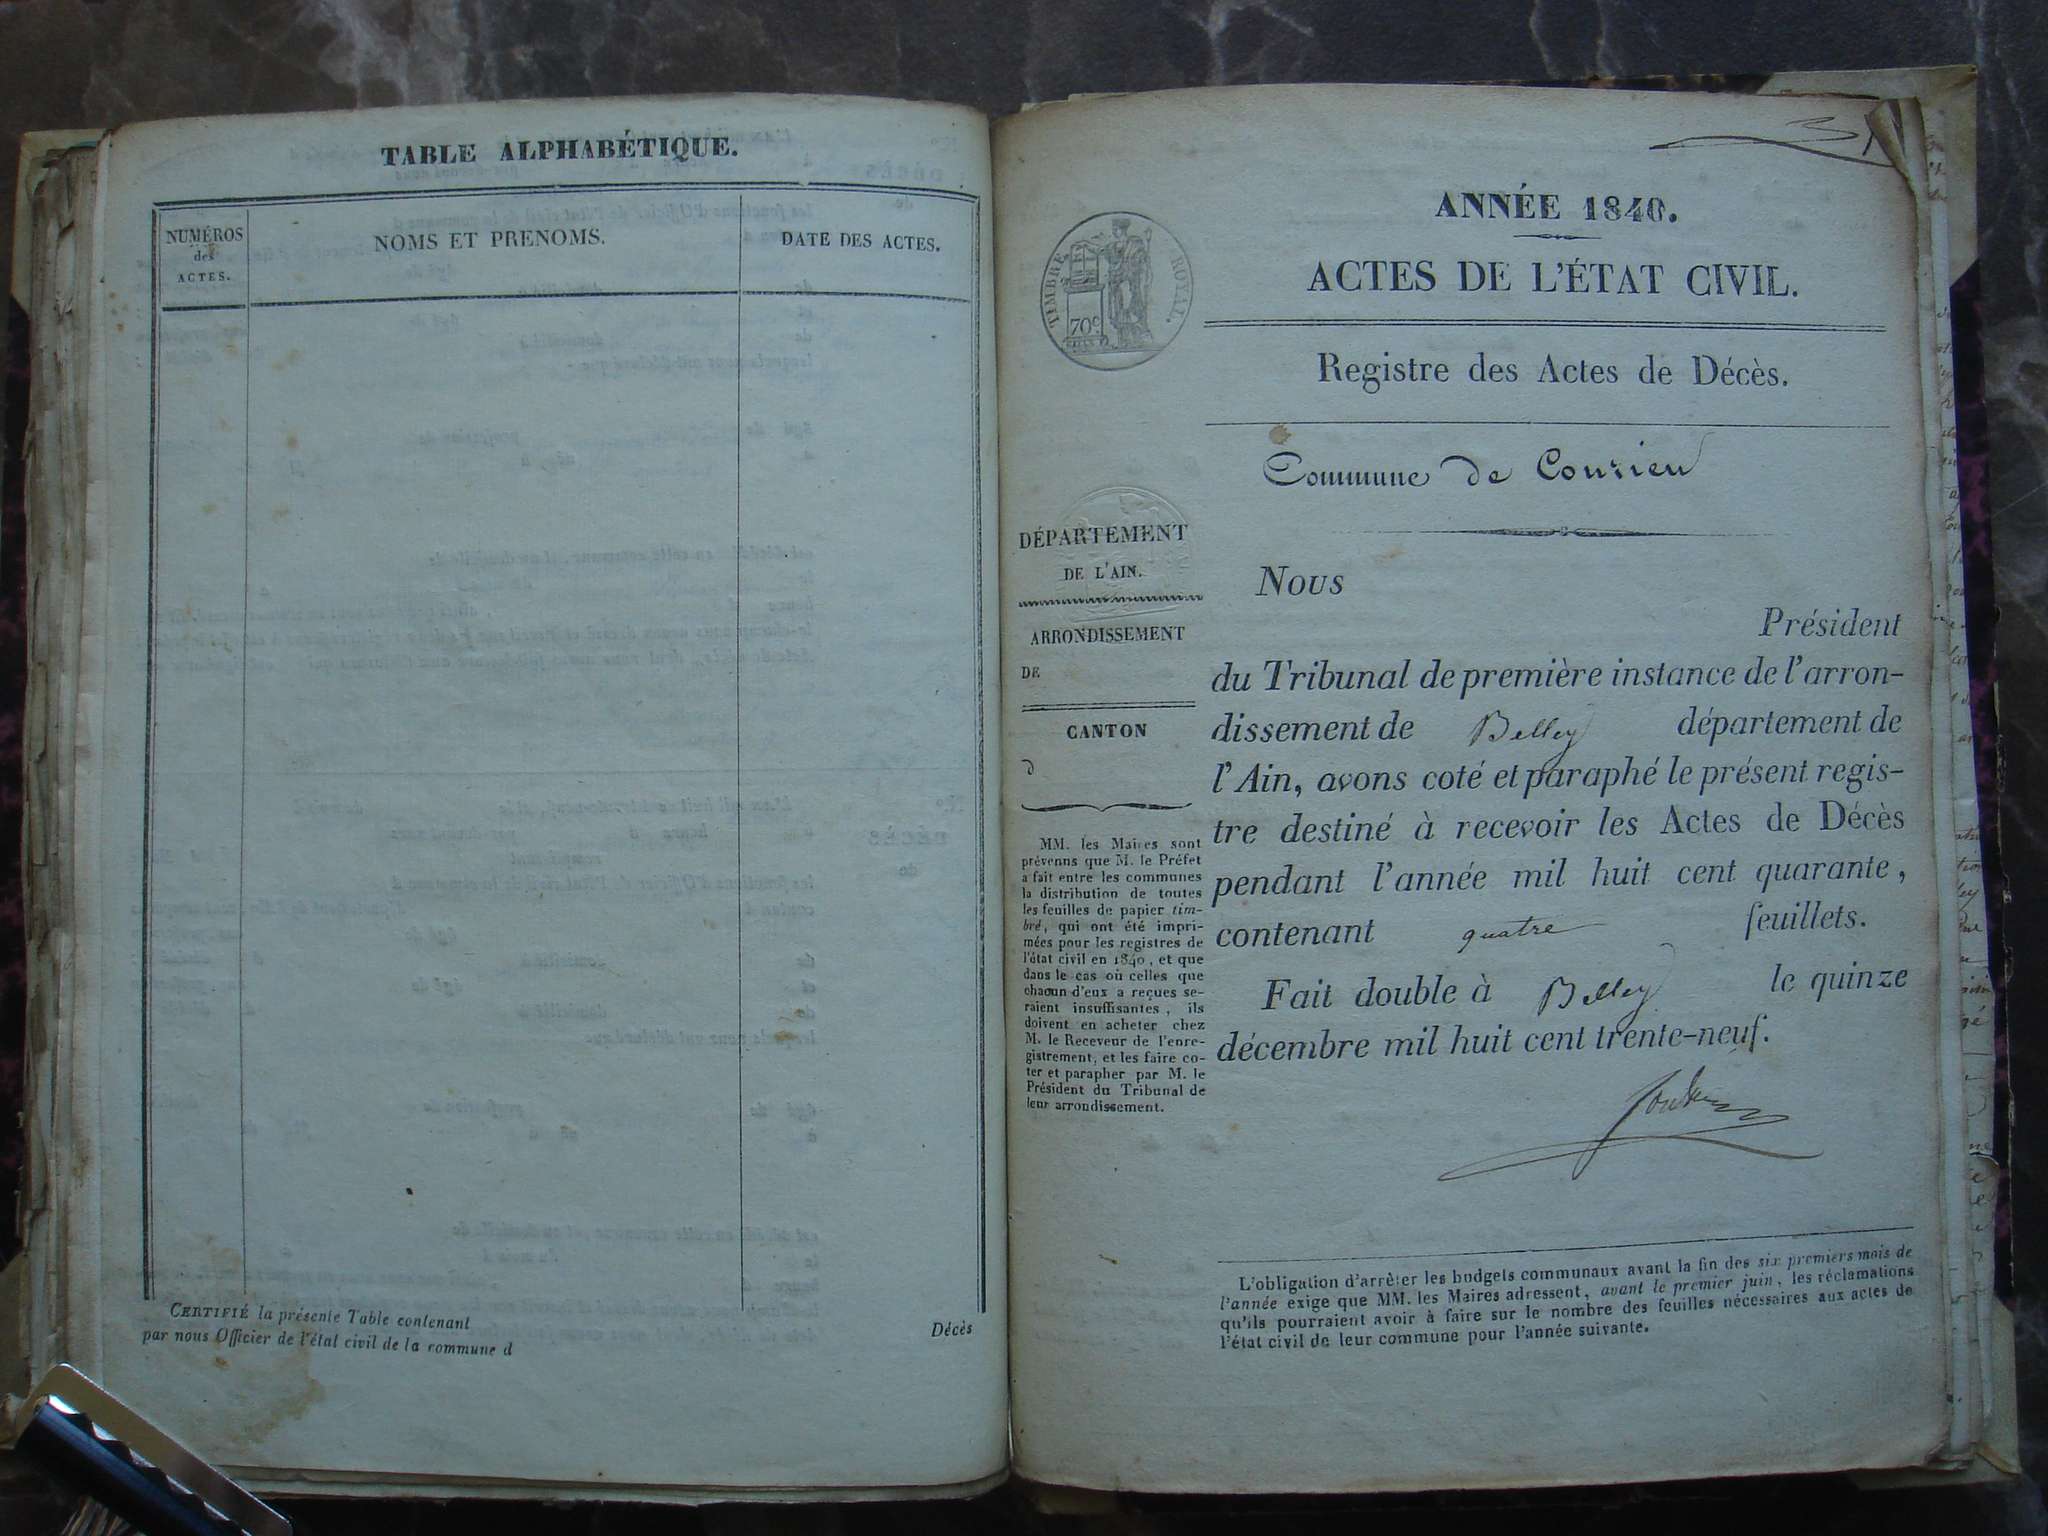 TABLE ALPHABÉTIQUE.
NUMÉROS
des
ACTES.
NOMS ET PRENOMS.
DATE DES ACTES.
CERTIFIÉ la présente Table contenant
Décès
par nous Officier de l'état civil de la commune d
ANNÉE 1840.
ACTES DE L'ÉTAT CIVIL.
TIMBRE ROYAL.
70c
Registre des Actes de Décès.
Commune de Conzieu
DÉPARTEMENT
DE L'AIN.
ARRONDISSEMENT
DE
CANTON
d
MM. les Maires sont
prévenus que M. le Préfet
a fait entre les communes
la distribution de toutes
les feuilles de papier tim-
bré, qui ont été impri-
mées pour les registres de
l'état civil en 1840, et que
dans le cas où celles que
chacun d'eux a reçues se-
raient insuffisantes, ils
doivent en acheter chez
M. le Receveur de l'enre-
gistrement, et les faire co-
ter et parapher par M. le
Président du Tribunal de
leur arrondissement.
Nous
Président
du Tribunal de première instance de l'arron-
dissement de Belley département de
l'Ain, avons coté et paraphé le présent regis-
tre destiné à recevoir les Actes de Décès
pendant l'année mil huit cent quarante,
contenant quatre feuillets.
Fait double à Belley le quinze
décembre mil huit cent trente-neuf.
L'obligation d'arrêter les budgets communaux avant la fin des six premiers mois de
l'année exige que MM. les Maires adressent, avant le premier juin, les réclamations
qu'ils pourraient avoir à faire sur le nombre des feuilles nécessaires aux actes de
l'état civil de leur commune pour l'année suivante.